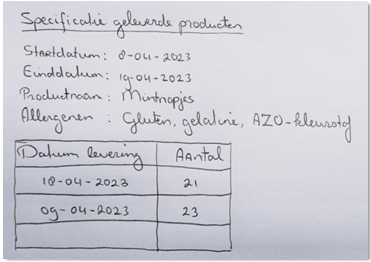 Specificatie geleverde producten
Startdatum: 8-04-2023
Einddatum: 19-04-2023
Productnaam: Mintnopjes
Allergenen: Gluten, gelatine, AZO-kleurstof
Datum levering Aantal
18-04-2023 21
09-04-2023 23